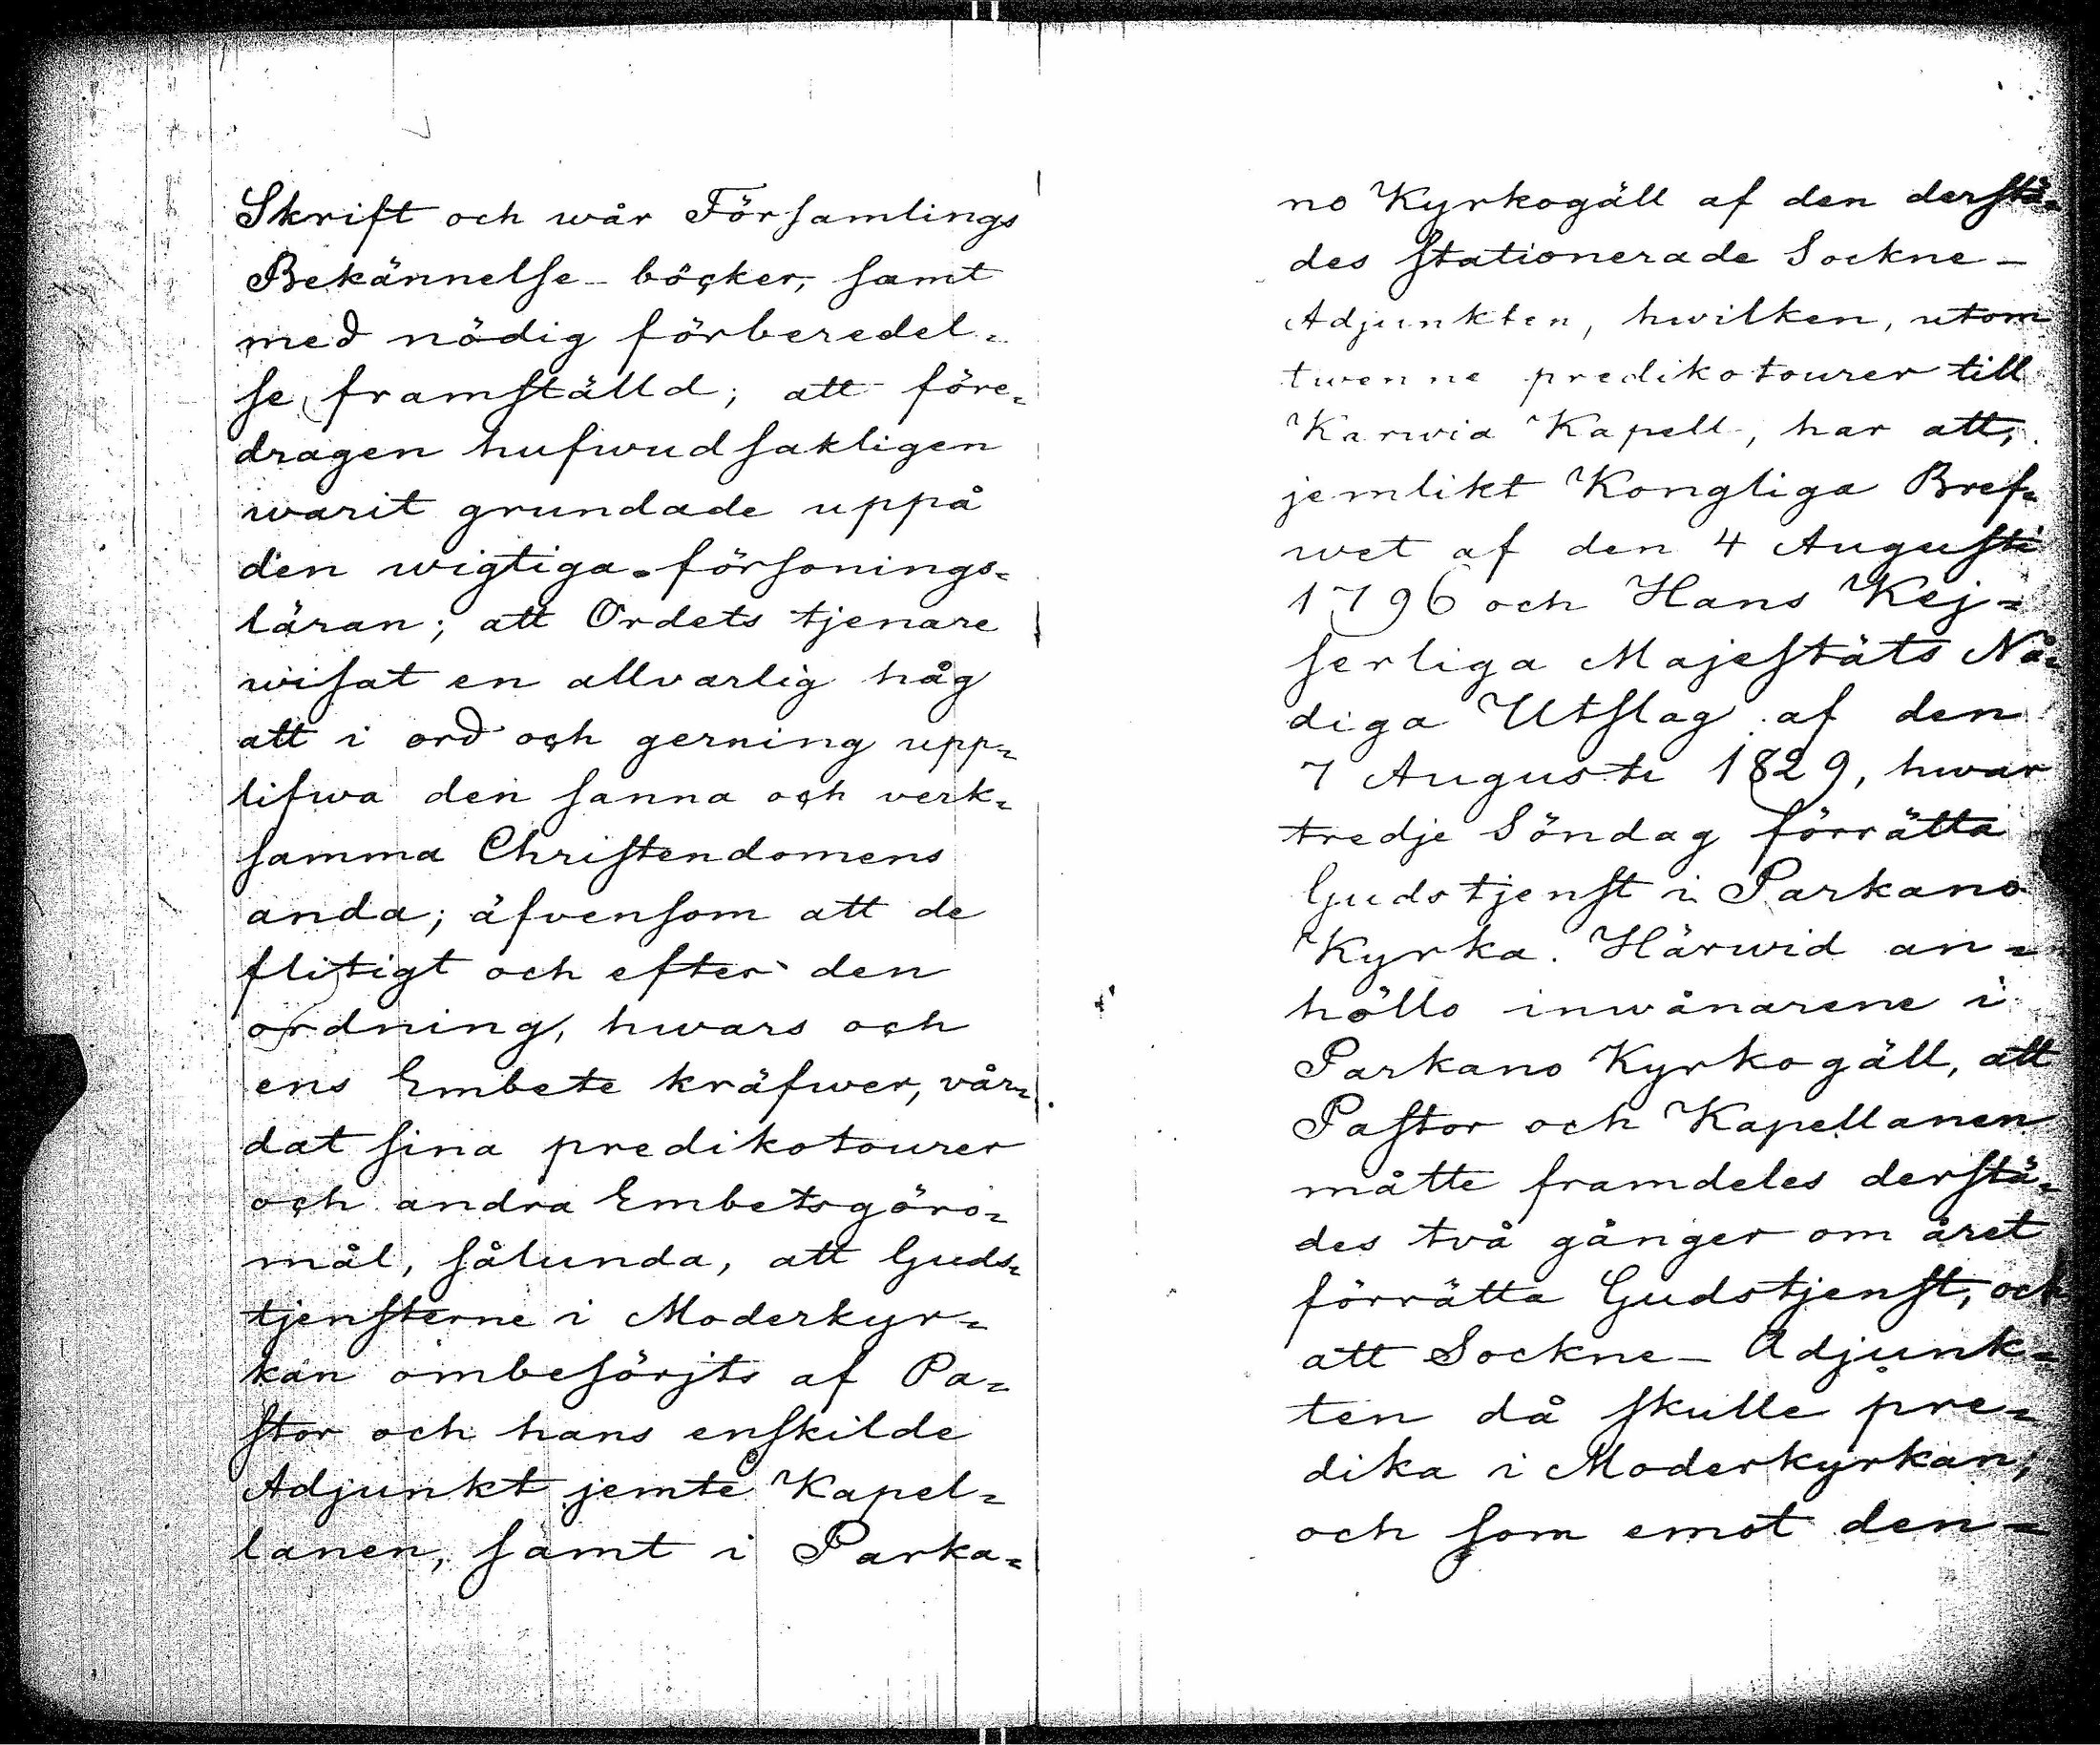 Skrift och wår Församlings
Bekännelse-böcker, samt
med nödig förberedel=
se framställd; att före=
dragen hufwudsakligen
warit grundade uppå
den wigtiga försonings=
läran; att Ordets tjenare
wisat en allvarlig håg
att i ord och gerning upp=
lifwa den sanna och verk=
samma Christendomens
anda; äfvensom att de
flitigt och efter den
ordning, hwars och
ens Embete kräfwer, vår=
dat sina predikotourer
och andra Embetsgörö=
mål, sålunda, att Guds=
tjensterne i Moderkyr=
kan ombesörjts af Pa=
stor och hans enskilde
Adjunkt jemte Kapel=
lanen, samt i Parka=
no Kyrkogäll af den derstä=
des stationerade Sockne-
Adjunkten, hwilken, utom
twenne predikotourer till
Karwia Kapell, har att,
jemlikt Kongliga Bref=
wet af den 4 Augusti
1796 och Hans Kej=
serliga Majestäts Nå=
diga Utslag af den
7 Augusti 1829, hwar
tredje Söndag förrätta
Gudstjenst i Parkano
Kyrka. Härwid an=
hölls inwånarene i
Parkano Kyrkogäll, att
Pastor och Kapellanen
måtte framdeles derstä=
des två gånger om året
förrätta Gudstjenst, och
att Sockne-Adjunk=
ten då skulle pre=
dika i Moderkyrkan;
och som emot den=